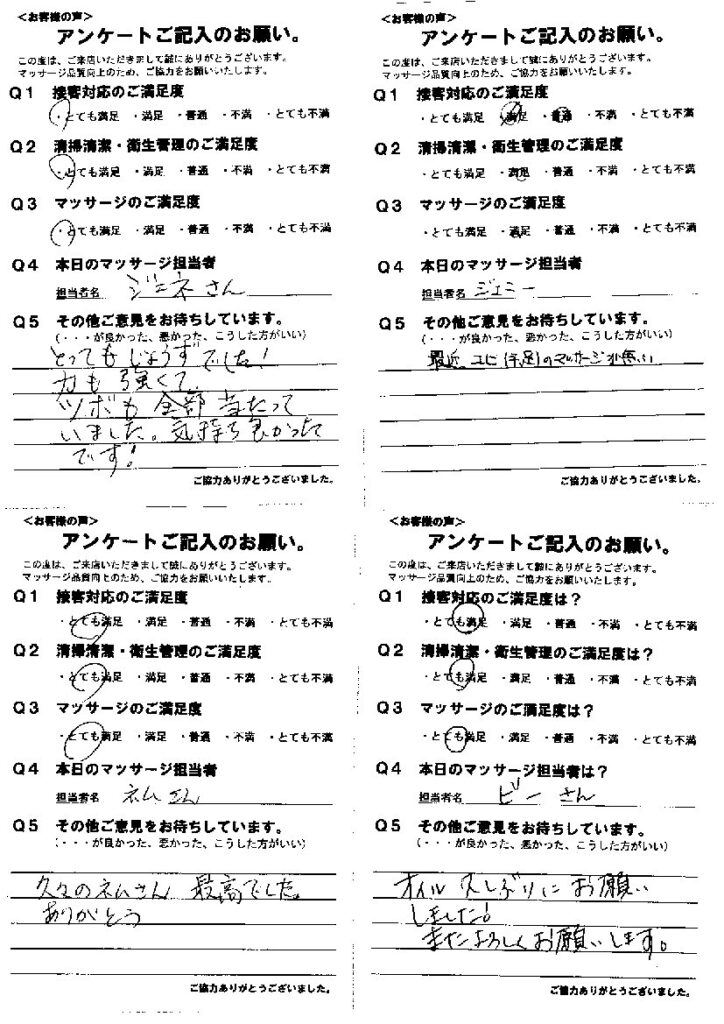 <お客様の声>
アンケートご記入のお願い。
この度は、ご来店いただきまして誠にありがとうございます。
マッサージ品質向上のため、ご協力をお願いいたします。
Q1 接客対応のご満足度
・とても満足 ・満足 ・普通 ・不満 ・とても不満
Q2 清掃清潔・衛生管理のご満足度
・とても満足 ・満足 ・普通 ・不満 ・とても不満
Q3 マッサージのご満足度
・とても満足 ・満足 ・普通 ・不満 ・とても不満
Q4 本日のマッサージ担当者
担当者名 ジェネさん
Q5 その他ご意見をお待ちしています。
(・・・が良かった、悪かった、こうした方がいい)
とってもじょうずでした!
力も強くて、
ツボも全部当たって
いました。気持ち良かった
です!
ご協力ありがとうございました。
<お客様の声>
アンケートご記入のお願い。
この度は、ご来店いただきまして誠にありがとうございます。
マッサージ品質向上のため、ご協力をお願いいたします。
Q1 接客対応のご満足度
・とても満足 ・満足 ・普通 ・不満 ・とても不満
Q2 清掃清潔・衛生管理のご満足度
・とても満足 ・満足 ・普通 ・不満 ・とても不満
Q3 マッサージのご満足度
・とても満足 ・満足 ・普通 ・不満 ・とても不満
Q4 本日のマッサージ担当者
担当者名 ジェニー
Q5 その他ご意見をお待ちしています。
(・・・が良かった、悪かった、こうした方がいい)
最近 ユビ(手足)のマッサージが無い
ご協力ありがとうございました。
<お客様の声>
アンケートご記入のお願い。
この度は、ご来店いただきまして誠にありがとうございます。
マッサージ品質向上のため、ご協力をお願いいたします。
Q1 接客対応のご満足度
・とても満足 ・満足 ・普通 ・不満 ・とても不満
Q2 清掃清潔・衛生管理のご満足度
・とても満足 ・満足 ・普通 ・不満 ・とても不満
Q3 マッサージのご満足度
・とても満足 ・満足 ・普通 ・不満 ・とても不満
Q4 本日のマッサージ担当者
担当者名 ネムさん
Q5 その他ご意見をお待ちしています。
(・・・が良かった、悪かった、こうした方がいい)
久々のネムさん 最高でした。
ありがとう
ご協力ありがとうございました。
<お客様の声>
アンケートご記入のお願い。
この度は、ご来店いただきまして誠にありがとうございます。
マッサージ品質向上のため、ご協力をお願いいたします。
Q1 接客対応のご満足度は?
・とても満足 ・満足 ・普通 ・不満 ・とても不満
Q2 清掃清潔・衛生管理のご満足度は?
・とても満足 ・満足 ・普通 ・不満 ・とても不満
Q3 マッサージのご満足度は?
・とても満足 ・満足 ・普通 ・不満 ・とても不満
Q4 本日のマッサージ担当者は?
担当者名 ビーさん
Q5 その他ご意見をお待ちしています。
(・・・が良かった、悪かった、こうした方がいい)
オイル久しぶりにお願い
しました!
またよろしくお願いします。
ご協力ありがとうございました。